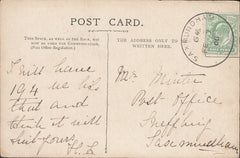 POST CARD.
THIS SPACE, AS WELL AS THE BACK, MAY
NOW BE USED FOR COMMUNICATION.
(Post Office Regulation.)
THE ADDRESS ONLY TO BE
WRITTEN HERE.
SAXMUNDHAM
I will have
194 we has
that and
think it will
suit yours
Mr Minter
Post Office
Saxmundham